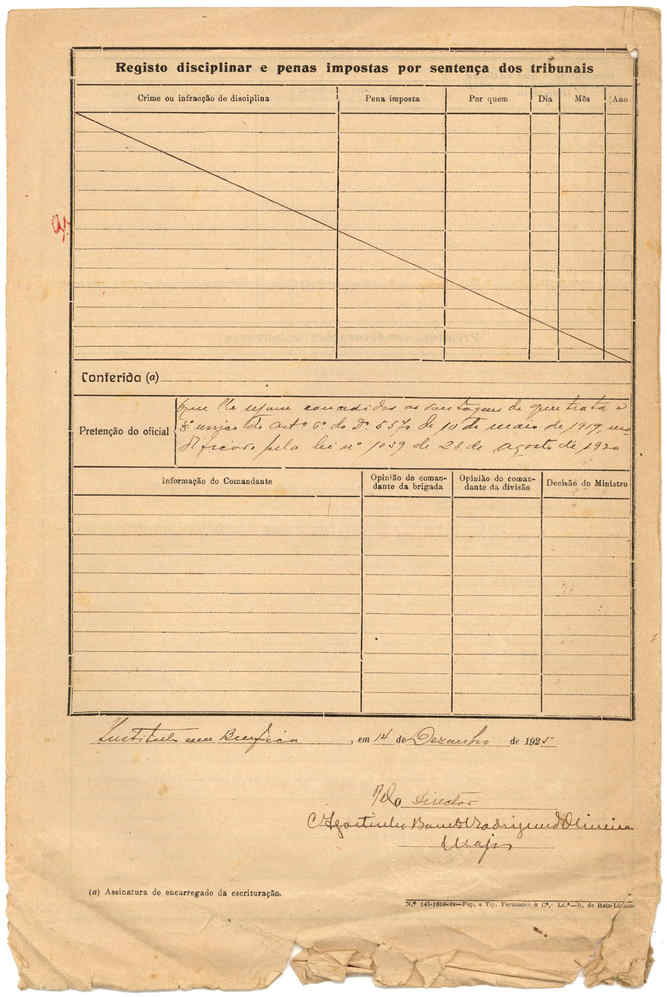 Registo disciplinar e penas impostas por sentença dos tribunais
Crime ou infracção de disciplina Pena imposta Por quem Dia Mês Ano
Conferida (a)
Pretenção do oficial
que lhe sejam concedidas as vantagens de que trata a
artº 6º do Dº 5570 de 10 de maio de 1919, mo
dificado pela lei nº 1039 de 28 de Agosto de 1920
Informação do Comandante Opinião do coman-
dante da brigada Opinião do coman-
dante da divisão Decisão do Ministro
Instituto em Bemfica, em 14 de Dezembro de 1925
Pelo Director
Agostinho Rodrigues d'Oliveira
Major
(a) Assinatura do encarregado da escrituração.